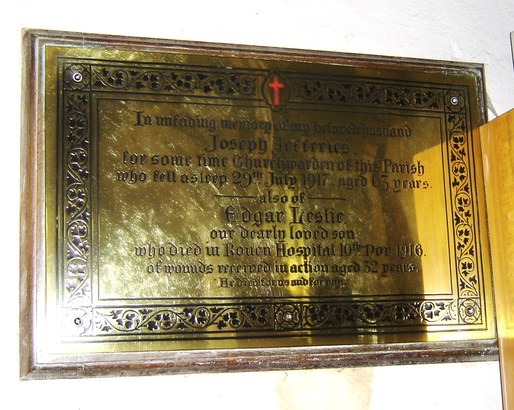 In unfading memory of my beloved husband
Joseph Jefferies,
for some time Churchwarden of this Parish
who fell asleep 29th July 1917, aged 63 years.
also of
Edgar Leslie
our dearly loved son
who died in Rouen Hospital 10th Nov. 1916.
of wounds received in action aged 32 years.
He died for us and for